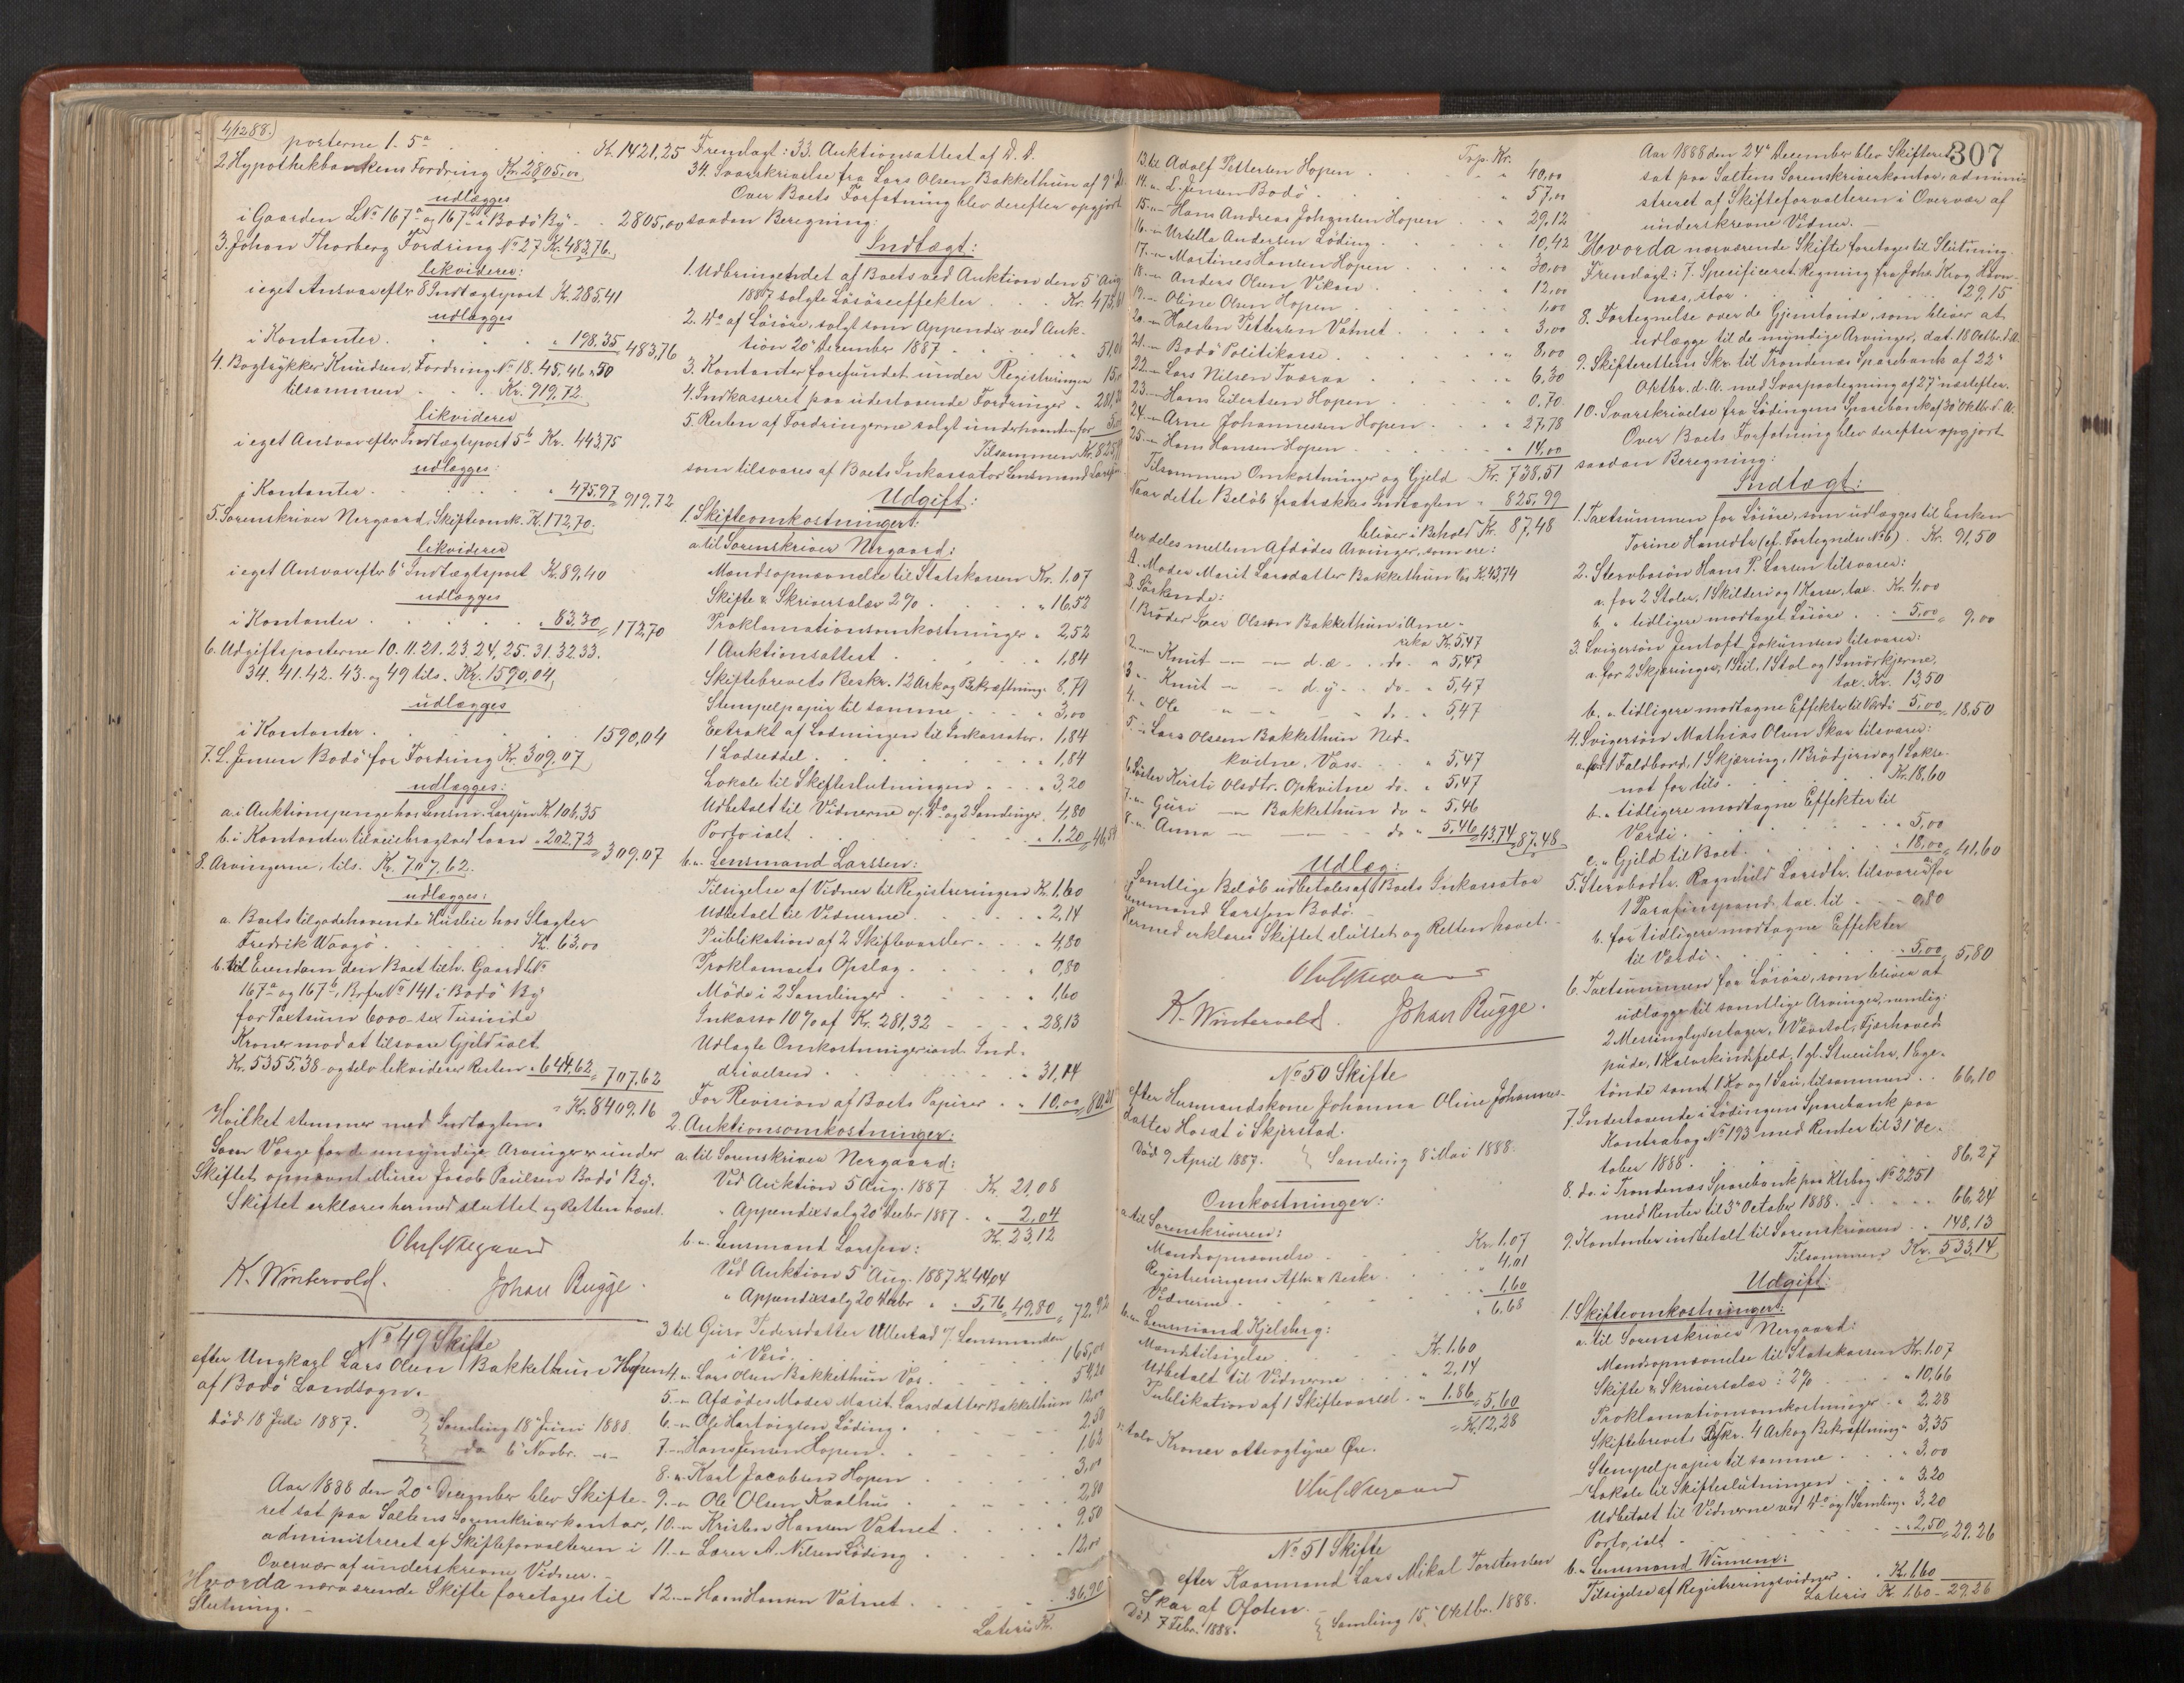 4/12 88.)
posterne 1. 5a . . . Kr. 1421,25
2. Hypothekbankens Fordring Kr. 2805,00
udlægges
i Gaarden LNo 167a og 167b i Bodö By . . 2805,00
3. Johan Thorberg Fordring No 27 Kr. 483,76.
likviderer:
i eget Ansvar efter 8 Indtægtspost Kr. 285,41
udlægges
i Kontanter . . . " 198.35 = 483,76
4. Bogtrykker Knudsen, Fordring No 18. 45. 46 " 50
tilsammen . . . Kr. 919,72
likviderer
i eget Ansvar efter Indtægtspost 5b Kr. 443,75
udlægges:
i Kontanter . . . " 475,97 = 919,72
5. Sorenskriver Nergaard, Skifteomk. Kr. 172,70.
likviderer
i eget Ansvar efter 6te Indtægtspost Kr. 89,40
udlægges
i Kontanter . . . " 83.30 = 172,70
6. Udgiftsposterne 10. 11. 21. 23. 24, 25. 31. 32. 33.
34. 41. 42. 43. og 49 tils. Kr. 1590,04
udlægges
i Kontanter . . . 1590,04
7. L. Jensen Bodö for Fordring Kr. 309,07
udlægges:
a. i Auktionspenge hos Lensm. Larssen Kr. 106,35
b. i Kontanter, tilveiebragt ved Laan " 202,72 = 309,07
8. Arvingerne, tils. Kr. 707,62.
udlægges:
a. Boets tilgodehavende Husleie hos Slagter
Fredrik Waagö . . . Kr. 63,00
b. til Eiendom den Boet tilh. Gaard LNo
167a og 167b, Brfr No 141 i Bodö By
for Taxtsum 6000 - sex Tusinde
Kroner mod at tilsvare Gjeld ialt
Kr. 5355.38 og selv likviderer Resten " 644,62 = 707,62
= Kr. 8409,16
Hvilket stemmer med Indtægten.
Som Værge for de umyndige Arvinger er under
Skiftet opnævnt Murer Jacob Paulsen Bodö By.
Skiftet erklæres hermed sluttet og Retten hævet.
Oluf Nergaard
K. Wintervold. Johan Bugge.
No 49 Skifte
efter Ungkarl Lars Olsen Bakkethun Hopen
af Bodö Landsogn.
död 18 Juli 1887. Samling 18de Juni 1888.
do 6te Novbr. -"-
Aar 1888 den 20de December blev Skifte-
ret sat paa Saltens Sorenskriverkontor,
administreret af Skifteforvalteren i
Overvær af underskrevne Vidner. -
Hvorda nærværende Skifte foretoges til
Slutning. -
Fremlagt: 33. Auktionsattest af D. D.
34. Svarskrivelse fra Lars Olsen Bakkethun af 9de
Over Boets Forfatning blev derefter opgjort
saadan Beregning:
Indtægt:
1. Udbringendet af Boets ved Auktion den 5te Aug.
1887 solgte Lösöreeffekter . . . Kr. 473,
2. Do af Lösöre, solgt som Appendix ved Auk-
tion 20de December 1887 . . . " 51,
3. Kontanter forefundet under Registringen 15,
4. Indkasseret paa udestaaende Fordringer " 281,
5. Resten af Fordringerne solgt underhaanden for 5,
Tilsammen Kr. 825,
som tilsvares af Boets Inkassator Lensmand
Udgift:
1. Skifteomkostninger:
a. til Sorenskriver Nergaard:
Mandsopnævnelse til Statskassen Kr. 1.07
Skifte & Skriversalær 2% . . . " 16,52
Proklamationsomkostninger . " 2,52
1 Auktionsattest . . . " 1,84
Skiftebrevets Beskr. 12 Ark og Bekræftning " 8,79
Stempelpapir til samme . . . " 3,00
Extrakt af Ladningen til Inkassator . 1,84
1 Ladseddel . . . " 1,84
Lokale til Skifteslutningen . . . " 3,20
Udbetalt til Vidnerne v/ Do og 2 Samlinger . 4,80
Porto ialt . . . " 1.20
b. " Lensmand Larssen:
Tilsigelse af Vidner til Registreringen Kr. 1.60
Udbetalt til Vidnerne . . . " 2,14
Publikation af 2 Skiftevarsler . . . " 4,80
Proklamaets Opslag . . . " 0,80
Möde i 2 Samlinger . . . " 1,60
Inkasso 10% af Kr. 281,32 . . " 28,13
Udlagte Omkostninger ved Ind-
drivelsen . . . " 31,14
For Revision af Boets Papirer . . " 10,00
2. Auktionsomkostninger:
a. til Sorenskriver Nergaard:
Ved Auktion 5 Aug. 1887 Kr. 21,08
" Appendixsalg 20de Decbr 1887 . " 2,04
Kr. 23,12
b. " Lensmand Larssen:
Ved Auktion 5te Aug. 1887 Kr. 44,04
" Appendixsalg 20 Decbr " " 5,76 = 49,80 = 72,92
3 til Guro Pedersdatter Ullestad % Lensmanden
i Voss . . . 165,00
4. " Lars Olsen Bakkethun Vos . . . 54,20
5. " Afdödes Moder Marit Larsdatter Bakkethun 12,00
6. " Ole Hartvigsen Löding . . . 2,50
7. " Hans Jensen Hopen . . . 1,62
8. " Karl Jacobsen Hopen . . . 3,00
9. " Ole Olsen Kaalhus . . . 2,80
10. " Kristen Hansen Vatnet . . . 9,50
11. " Lærer A. Nilsen Löding . . . " 12,00
12. " Hans Hansen Vatnet . . . 36,90
Lateris Kr.
Trsp. Kr.
13. til Adolf Pettersen Hopen . . . " 40,00
14. " L. Jensen Bodö . . . " 57,00
15. " Hans Andreas Johansen Hopen . . " 29,12
16. " Ursella Andersen Löding . . . " 10,42
17. " Martines Hansen Hopen . . . " 30,00
18. " Anders Olsen Vikan . . . " 12,00
19. " Oline Olsen Hopen . . . 1,00
20. " Halsten Pettersen Vatnet . . . " 3,00
21. " Bodö Politikasse . . . " 8,00
22. " Lars Nilsen Tværaa . . . " 6,30
23. " Hans Eilertsen Hopen . . . " 0.70
24. " Arne Johannessen Hopen . . . " 27,78
25. " Hans Hansen Hopen . . . " 14,00
Tilsammen Omkostninger og Gjeld Kr. 738,51
Naar dette Beløb fratrækkes Indtægten " 825,99
bliver i Behold Kr. 87,48
der deles mellem Afdödes Arvinger, som ere:
A. Moder Marit Larsdatter Bakkethun Vos Kr. 43,74
B. Söskende:
1. Broder Iver Olsen Bakkethun i Ame-
rika Kr. 5,47
2. " Knut — — d. æ. . do. " 5,47
3. " Knut — — d. y. . do. " 5,47
4. " Ole " — — do. " 5,47
5. " Lars Olsen Bakkethun Ned-
kvitne, Voss . . . " 5,47
6. Söster Kirsti Olsdtr. Opkvitne do. " 5,47
7. " Guri — Bakkethun do " 5,46
8. " Anna — — do " 5,46 = 43,74 = 87,48
Udlæg:
Samtlige Beløb udbetales af Boets Inkassator
Lensmand Larssen Bodö. -
Hermed erklæres Skiftet sluttet og Retten hævet. -
Oluf Nergaard
K. Wintervold. Johan Bugge.
No 50 Skifte
efter Husmandskone Johanna Oline Johannes-
datter Hosæt i Skjerstad.
Död 9 April 1887. Samling 8de Mai 1888.
Omkostninger:
a. til Sorenskriveren:
Mandsopnævnelse . . . Kr. 1.07
Registreringens Afh. & Beskr. . . . " 4,01
Vidnerne . . . " 1,60
" 6,68
b. " Lensmand Kjelsberg:
Mandstilsigelse . . . Kr. 1.60
Udbetalt til Vidnerne . . . " 2,14
Publikation af 1 Skiftevarsel . " 1.86 = 5,60
= Kr. 12,28
tolv Kroner otteogtyve Öre.
Oluf Nergaard
No 51 Skifte
efter Kaarmand Lars Mikal Torstensen
Skar af Ofoten. -
Död 7 Febr. 1888. Samling 15de Oktbr. 1888.
307
Aar 1888 den 24de December blev Skifteret
sat paa Saltens Sorenskriverkontor, admini-
streret af Skifteforvalteren i Overvær af
underskrevne Vidner. -
Hvorda nærværende Skifte foretoges til Slutning.
Fremlagt: 7. Specificeret Regning fra Johs. Krog
næs, stor . . . 129.15
8. Fortegnelse over de Gjenstande, som bliver at
udlægge til de myndige Arvinger, dat. 18 Octbr. d. A.
9. Skifterettens Skr. til Trondenæs Sparebank af 22de
Oktbr. d. A. med Svarpaategning af 27de næstefter.
10. Svarskrivelse fra Lödingens Sparebank af 30 Oktbr. d. A.
Over Boets Forfatning blev derefter opgjort
saadan Beregning:
Indtægt:
1. Taxtsummen for Lösöre, som udlægges til Enken
Torine Hansdtr (cf. Fortegnelse No 6) . Kr. 91,50
2. Stervbosön Hans P. Larsen tilsvarer:
a. for 2 Stoler, 1 Skilderi og 1 Karse, tax. Kr. 4,00
b. " tidligere modtaget Lösöre . . " 5,00 = 9,00
3. Svigersön Jentoft Jokumsen tilsvarer:
a. for 2 Skjæringer, 1 Stil, 1 Stol og 1 Smörkjerne,
tax. Kr. 13,50
b. " tidligere modtagne Effekter til Værdi 5,00 = 18,50
4. Svigersön Mathias Olsen Skar tilsvarer:
a. for 1 Foldbord, 1 Skjæring, 1 Brödjern og 1 Lakse-
not for tils. . . . Kr. 18,60
b. " tidligere modtagne Effekter til
Værdi . . . " 5,00
c. " Gjeld til Boet . . . " 18,00 = 41,60
5. Stervbodtr. Ragnhild Larsdtr. tilsvarer a) for
1 Parafinspand, tax. til . . . 0,80
b. for tidligere modtagne Effekter
til Værdi . . . " 5,00 = 5,80
6. Taxtsummen for Lösöre, som bliver at
udlægge til samtlige Arvinger, nemlig:
2 Messinglysestager, 1 Vævstol, Fjærhoved-
pude, 1 Kalveskindsfeld, 1 gl. Stueuhr, 1 Ege-
tönde samt 1 Ko og 1 Sau, tilsammen . . 66,10
7. Indestaaende i Lödingens Sparebank paa
Kontrabog No 193 med Renter til 31 Oc-
tober 1888. . . . 86,27
8. do. i Trondenæs Sparebank paa Ktrbog No 2251
med Renter til 3die October 1888 . . . 66,24
9. Kontanter indbetalt til Sorenskriveren . . " 148,13
Tilsammen Kr. 533,14
Udgift:
1. Skifteomkostninger:
a. til Sorenskriver Nergaard:
Mandsopnævnelse til Statskassen Kr. 1.07
Skifte & Skriversalær : 2% . . " 10,66
Proklamationsomkostninger . " 2,28
Skiftebrevets Beskr. 4 Ark og Bekræftning " 3,35
Stempelpapir til samme . . . " 3,00
Lokale til Skifteslutningen . . . " 3,20
Udbetalt til Vidnerne ved Do og 1 Samling " 3,20
Porto, ialt . . . " 2,50 = 29.26
b. " Lensmand Wimmer:
Tilsigelse af Registreringsvidner . . Kr. 1.60
Lateris Kr. 1.60 - 29.26